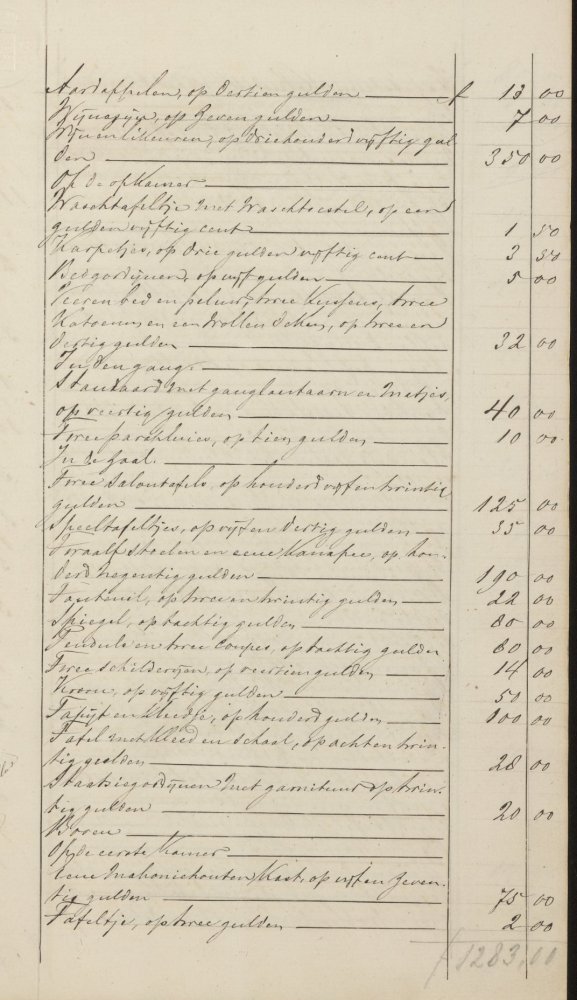 Aardappelen, op dertien gulden f 13 00
op Zeven gulden 7 00
Wijn en likeuren, op driehonderd vijftig gul
den 350 00
Op de opkamer
Waschtafeltje met Waschtoestel, op een
gulden vijftig cent 1 50
Karpetjes, op drie gulden vijftig cent 3 50
Bedgordijnen, op vijf gulden 5 00
Veeren bed en peluw, twee Kussens, twee
Katoenen en een wollen deken, op twee en
dertig gulden 32 00
In den gang.
Standaard met ganglantaarn en Matjes,
op veertig gulden 40 00
Twee parapluies, op tien gulden 10 00
In de Zaal.
Twee Salontafels, op honderd vijf en twintig
gulden 125 00
Speeltafeltjes, op vijf en dertig gulden 35 00
Twaalf Stoelen en eene Kanapee, op hon-
derd negentig gulden 190 00
Fauteuil, op twee en twintig gulden 22 00
Spiegel, op tachtig gulden 80 00
Pendule en twee coupes, op tachtig gulden 80 00
Twee schilderijen, op veertien gulden 14 00
Kroon, op vijftig gulden 50 00
Tapijt en kleedje, op honderd gulden 100 00
Tafel met kleed en schaal, op acht en twin-
tig gulden 28 00
Staatsiegordijnen met garnituur op twin-
tig gulden 20 00
Boven
Op de eerste Kamer
Eene Mahoniehouten Kast, op vijf en Zeven-
tig gulden 75 00
Tafeltje, op twee gulden 2 00
f 1283,00